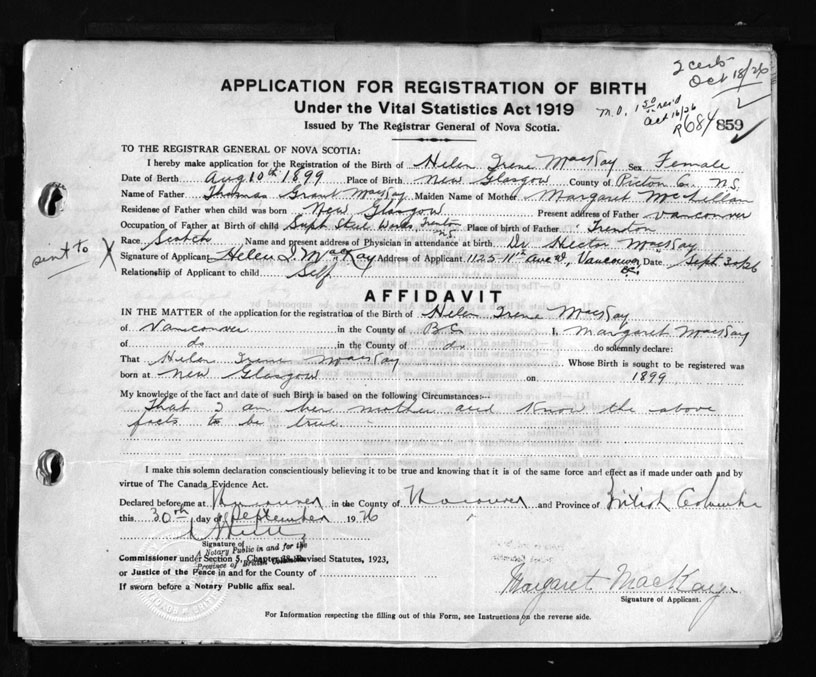 2 certs
Oct 18/26
APPLICATION FOR REGISTRATION OF BIRTH
Under the Vital Statistics Act 1919
M.O. 1 50 rec'd
Oct 16/26
Issued by The Registrar General of Nova Scotia.
R684 859
TO THE REGISTRAR GENERAL OF NOVA SCOTIA:
I hereby make application for the Registration of the Birth of Helen Irene MacKay Sex Female
Date of Birth Aug 10th 1899 Place of Birth New Glasgow County of Pictou Co., N.S.
Name of Father Thomas Grant MacKay Maiden Name of Mother Margaret McLellan
Residense of Father when child was born New Glasgow Present address of Father Vancouver
Occupation of Father at Birth of child Supt Steel Works, Trenton N.S. Place of birth of Father Trenton
Race Scotch Name and present address of Physician in attendance at birth Dr Hector MacKay
sent to X Signature of Applicant Helen I. MacKay Address of Applicant 1125 11th Ave W, Vancouver B.C. Date Sept 30/26
Relationship of Applicant to child Self
AFFIDAVIT
IN THE MATTER of the application for the registration of the Birth of Helen Irene MacKay
of Vancouver in the County of B C I, Margaret MacKay
of do in the County of do do solemnly declare:
That Helen Irene MacKay Whose Birth is sought to be registered was
born at New Glasgow on 1899
My knowledge of the fact and date of such Birth is based on the following Circumstances:
That I am her mother and know the above
facts to be true.
I make this solemn declaration conscientiously believing it to be true and knowing that it is of the same force and effect as if made under oath and by
virtue of The Canada Evidence Act.
Declared before me at Vancouver in the County of Vancouver and Province of British Columbia
this 30th day of September 1926
Signature of
A Notary Public in and for the
Commissioner under Section 5, Chapter 38 Revised Statutes, 1923,
Province of British Columbia
or Justice of the Peace in and for the County of
If sworn before a Notary Public affix seal.
Margaret MacKay
Signature of Applicant.
For Information respecting the filling out of this Form, see Instructions on the reverse side.